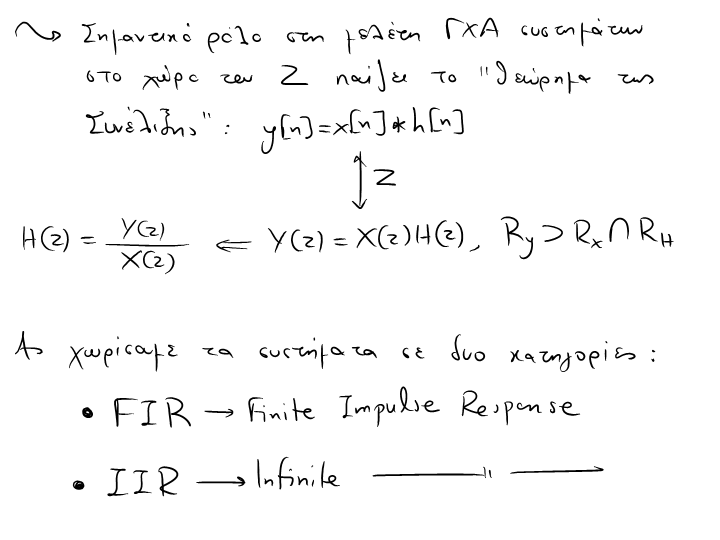 Σημαντικό ρόλο στη μελέτη ΓΧΑ συστημάτων
στο χώρο του Z παίζει το "θεώρημα της
Συνέλιξης": y[n]=x[n]*h[n]
↕ Z
H(z) = Y(z)/X(z) ⇐ Y(z) = X(z)H(z), Ry ⊃ Rx ∩ RH
Ας χωρίσουμε τα συστήματα σε δυο κατηγορίες:
• FIR → Finite Impulse Response
• IIR → Infinite —— " ——